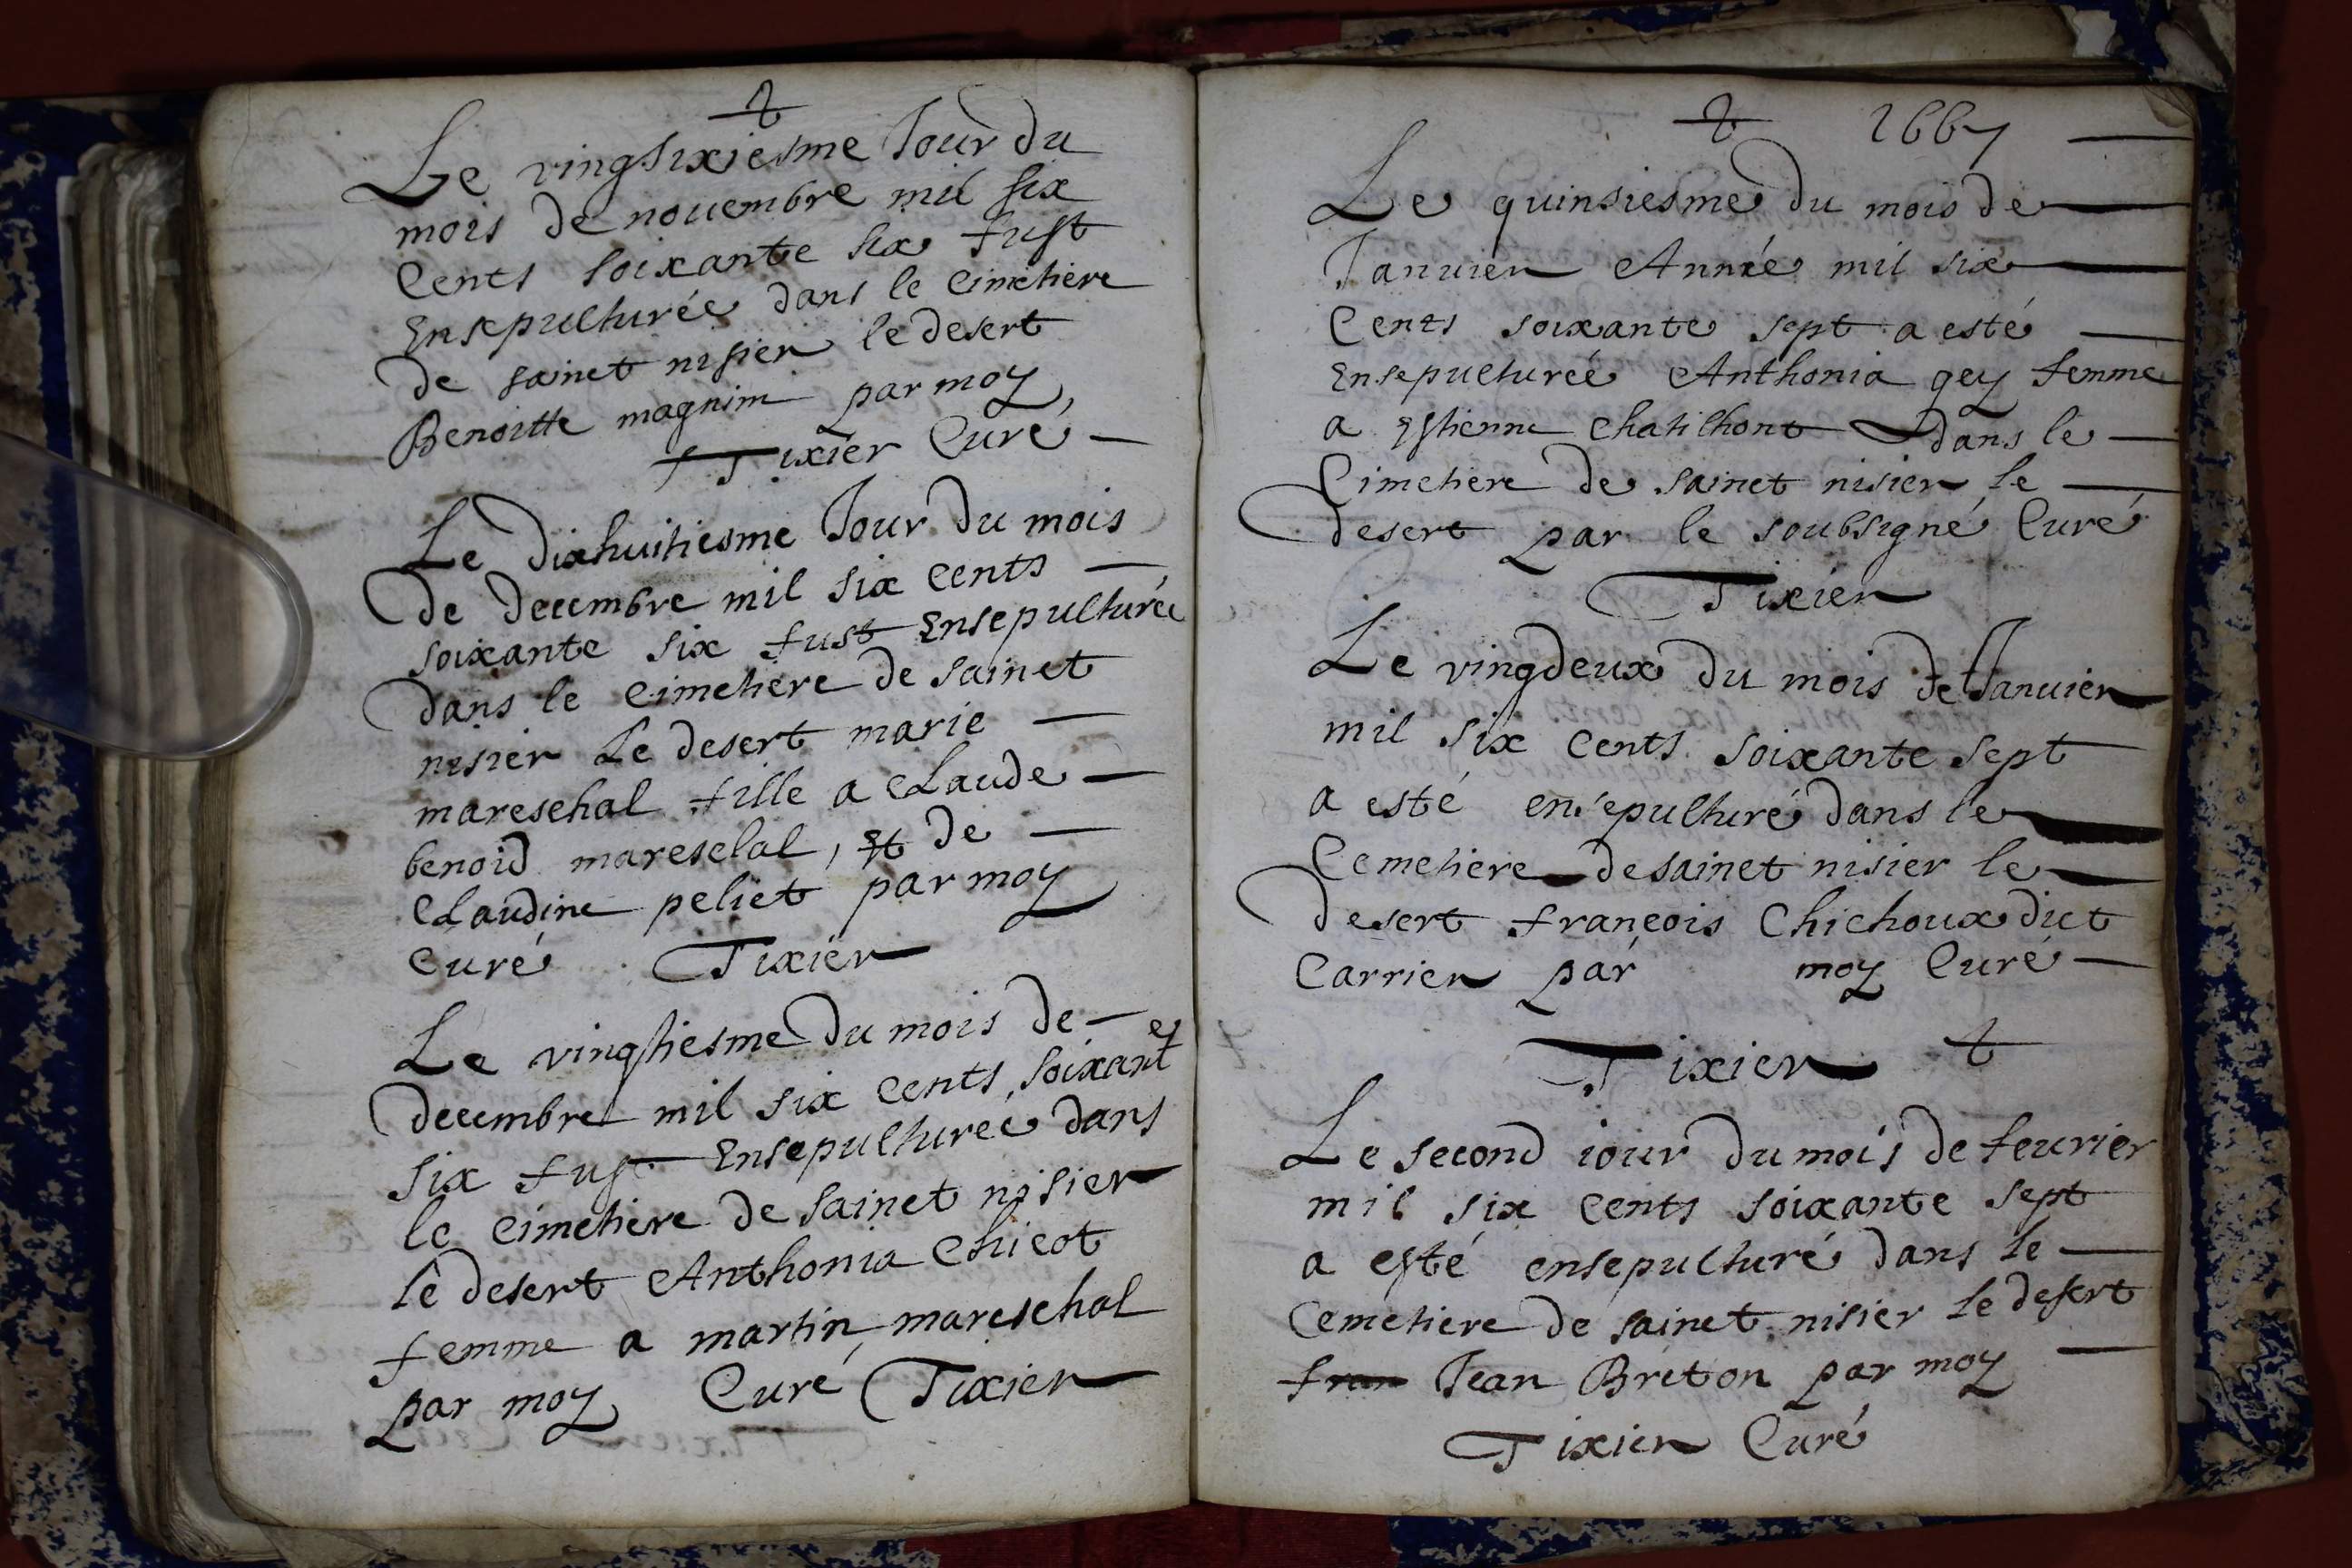 Le vingsixiesme Jour du
mois de nouembre mil six
Cents soixante six fust
Ensepulturée dans le Cimetiere
de sainct nisier le desert
Benoitte magnim par moy,
Tixier Curé
Le dixhuitiesme Jour du mois
de decembre mil six cents
soixante six fust Ensepulturée
dans le cimetiere de sainct
nisier Le desert marie
mareschal fille a Claude
benoid mareschal, Et de
Claudine peliet par moy
Curé Tixier
Le vingtiesme du mois de
decembre mil six cents soixante
six fust Ensepulturée dans
le cimetiere de sainct nisier
le desert Anthonia Chicot
femme a martin mareschal
par moy Curé Tixier
1667
Le quinsiesme du mois de
Januier Année mil six
Cents soixante sept a esté
Ensepulturée Anthonia gey femme
a Estienne Chatilhont dans le
Cimetiere de sainct nisier le
desert par le soubsigné Curé
Tixier
Le vingdeux du mois de Januier
mil six Cents soixante sept
a esté ensepulturé dans le
Cemetiere de sainct nisier le
desert françois Chichoux dict
Carrier par moy Curé
Tixier
Le second iour du mois de feurier
mil six Cents soixante sept
a esté ensepulturé dans le
Cemetiere de sainct nisier le desert
fran Jean Breton par moy
Tixier Curé